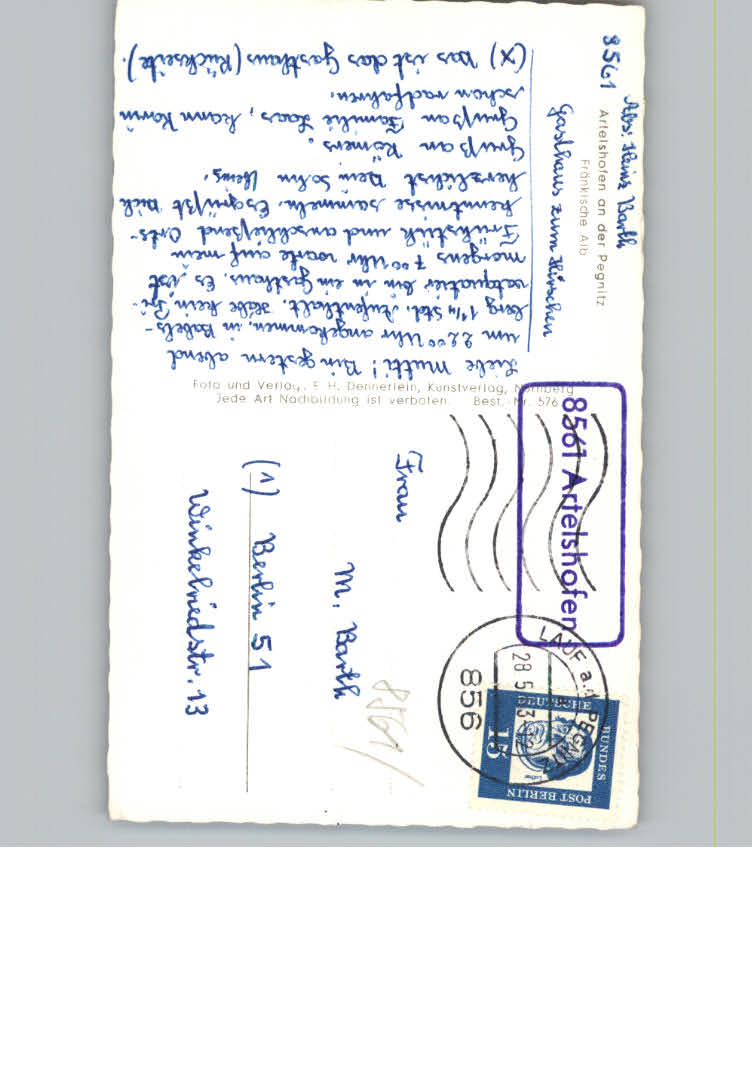 8561
Abs. Heinz Barth
Artelshofen an der Pegnitz
Fränkische Alb
Gasthaus zum Hirschen
Liebe Mutti! Bin gestern abend
um 22⁰⁰ Uhr angekommen, in Babels-
berg 1¼ Std. Aufenthalt. Habe kein Pri-
vatquatier bin in ein Gasthaus. Es ist
morgens 7⁰⁰ Uhr warte auf mein
Frühstück und anschließend Orts-
kenntnisse sammeln. Es grüßt Dich
herzlichst Dein Sohn Heinz.
Gruß an Römers.
Gruß an Familie Haas, kann Karin
schon radfahren.
(X) Das ist das Gasthaus (Rückseite).
Foto und Verlag, E. H. Dennerlein, Kunstverlag, Nürnberg
Jede Art Nachbildung ist verboten. Best.-Nr. 576
8561 Artelshofen
LAUF a. d. PEGNITZ
28.5
856
DEUTSCHE
BUNDES
POST BERLIN
15
Luther
8561/
Frau
M. Barth
(1) Berlin 51
Winkelriedstr. 13